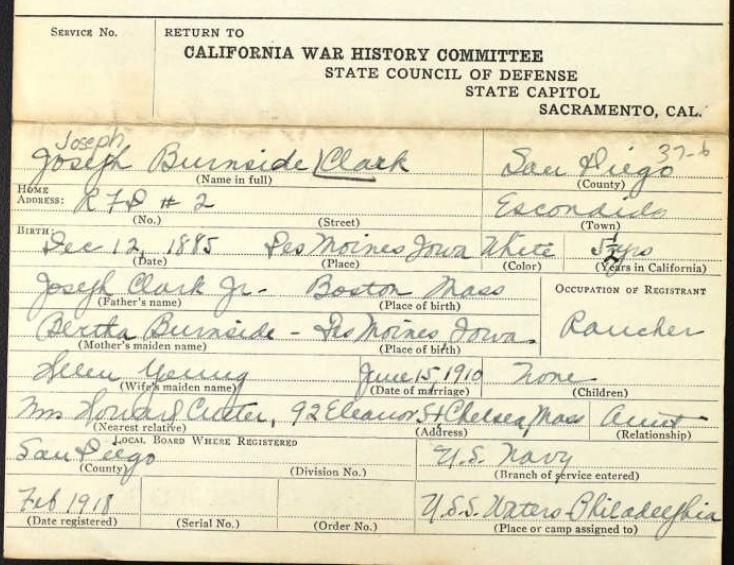 SERVICE NO.
RETURN TO
CALIFORNIA WAR HISTORY COMMITTEE
STATE COUNCIL OF DEFENSE
STATE CAPITOL
SACRAMENTO, CAL.
Joseph 37-b
Joseph Burnside Clark San Diego
(Name in full) (County)
HOME ADDRESS: R F D # 2 Escondido
(No.) (Street) (Town)
BIRTH: Dec 12, 1885 Des Moines Iowa White yrs
(Date) (Place) (Color) (Years in California)
Joseph Clark Jr - Boston Mass OCCUPATION OF REGISTRANT
(Father's name) (Place of birth)
Bertha Burnside - Des Moines, Iowa. Rancher
(Mother's maiden name) (Place of birth)
Helen Young June 15, 1910 None
(Wife's maiden name) (Date of marriage) (Children)
Mrs Howard Custer, 92 Eleanor St Chelsea, Mass Aunt
(Nearest relative) (Address) (Relationship)
LOCAL BOARD WHERE REGISTERED
San Diego U.S. Navy
(County) (Division No.) (Branch of service entered)
Feb 1918 U.S.S. Waters-Philadelphia
(Date registered) (Serial No.) (Order No.) (Place or camp assigned to)